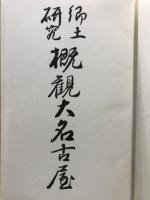 郷土
研究
概觀大名古屋